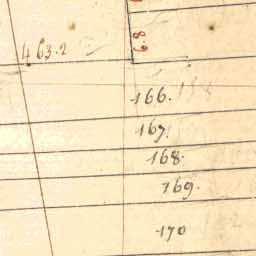 6.8
463.2
166.
167.
168.
169.
170